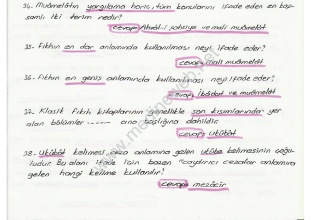 34. Muâmelâtın yargılama hariç, tüm konularını ifade eden en kap-
samlı iki terim nedir?
cevap: Ahvâl-i şahsiye ve mali muâmelât
35. Fıkhın en dar anlamında kullanılması neyi ifade eder?
cevap: mali muâmelât
36. Fıkhın en geniş anlamında kullanılması neyi ifade eder?
cevap: İbâdat ve muâmelât
37. Klasik fıkıh kitaplarının genellikle son kısımlarında yer
alan bölümler ------ ana başlığına dahildir.
cevap: ukûbât
38. Ukûbât kelimesi, ceza anlamına gelen ukûbe kelimesinin çoğu-
ludur. Bu alanı ifade için bazen "caydırıcı cezalar anlamına
gelen hangi kelime kullanılır?
cevap: mezâcir